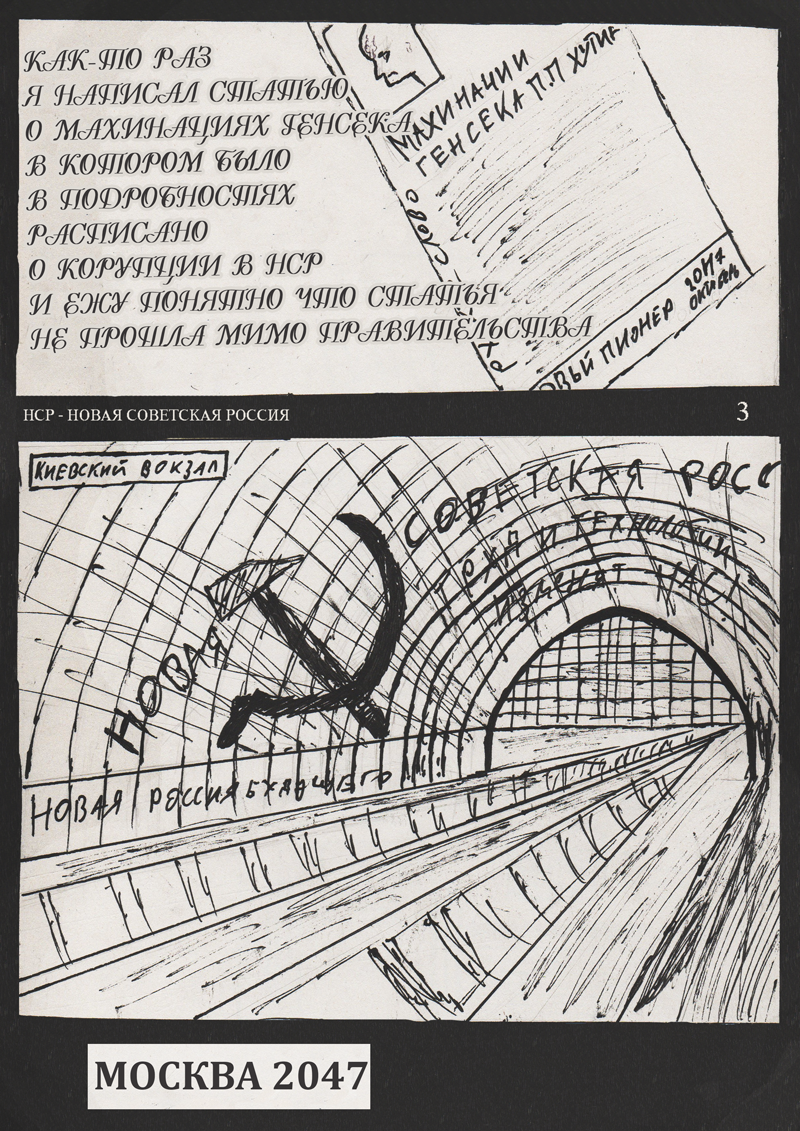 КАК-ТО РАЗ
Я НАПИСАЛ СТАТЬЮ
О МАХИНАЦИЯХ ГЕНСЕКА
В КОТОРОМ БЫЛО
В ПОДРОБНОСТЯХ
РАСПИСАНО
О КОРУПЦИИ В НСР
И ЕЖУ ПОНЯТНО ЧТО СТАТЬЯ
НЕ ПРОШЛА МИМО ПРАВИТЕЛЬСТВА
МАХИНАЦИИ
ГЕНСЕКА П.П ХУТИН
СЛОВО
ОВЫЙ ПИОНЕР 2047
НСР - НОВАЯ СОВЕТСКАЯ РОССИЯ
3
КИЕВСКИЙ ВОКЗАЛ
НОВАЯ СОВЕТСКАЯ РОСС
И ТЕХНОЛОГИИ
ИЗМЕНЯТ НАС!
НОВАЯ РОССИЯ БУДУЩЕГО !!!
МОСКВА 2047